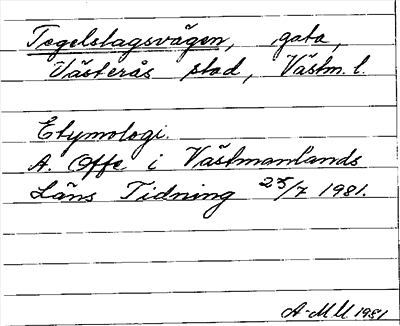 Tegelslagsvägen, gata,
Västerås stad, Västm. l.
Etymologi.
A. Offe i Västmanlands
Läns Tidning 25/7 1981.
A-MU 1981